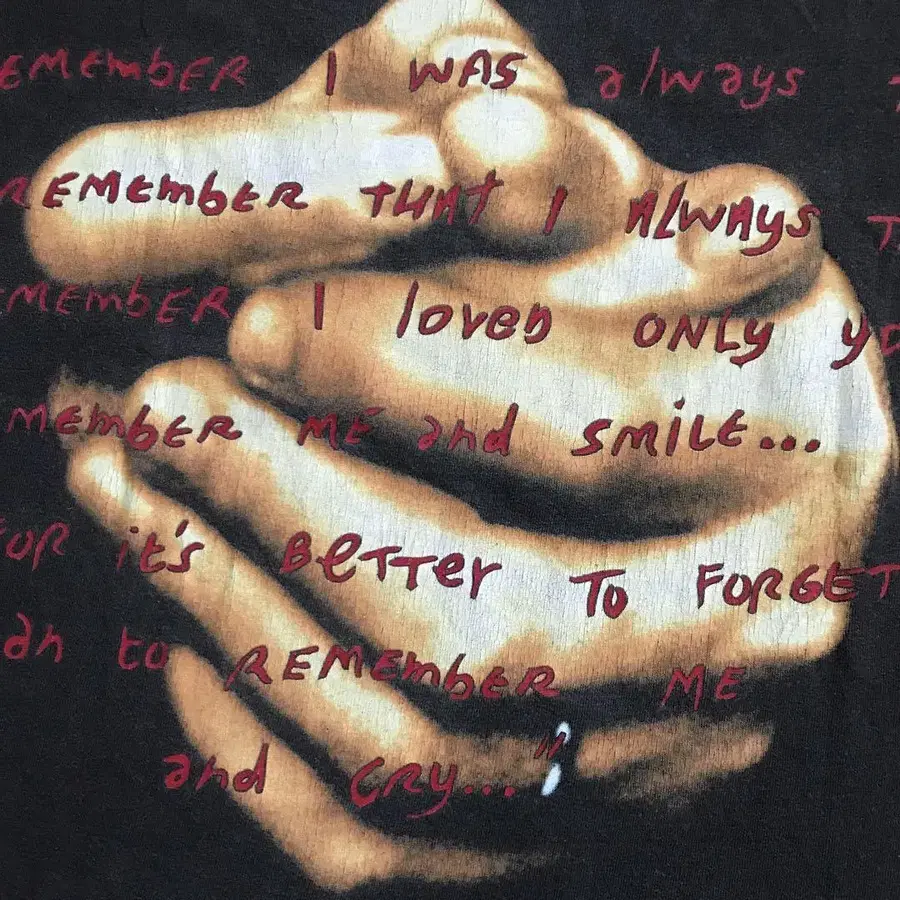 EMEmbER I WAS always
REMEmbER THAT I AlWAys
MEmbER I loveD ONLY yo
MEmbER ME and SMiLE...
FOR it's BeTTer To FORGET
an to REMEmbER ME
and CRy..."